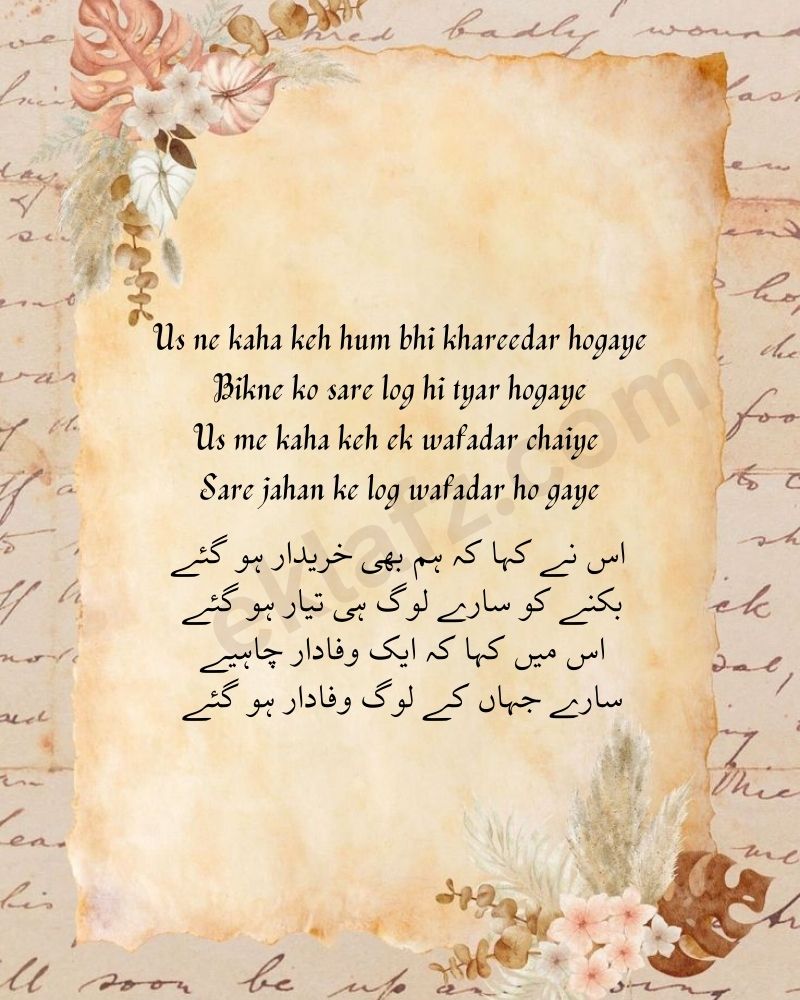 Us ne kaha keh hum bhi khareedar hogaye
Bikne ko sare log hi tyar hogaye
Us me kaha keh ek wafadar chaiye
Sare jahan ke log wafadar ho gaye
اس نے کہا کہ ہم بھی خریدار ہو گئے
بکنے کو سارے لوگ ہی تیار ہو گئے
اس میں کہا کہ ایک وفادار چاہیے
سارے جہاں کے لوگ وفادار ہو گئے
eklafz.com
badly wound
soon be up an